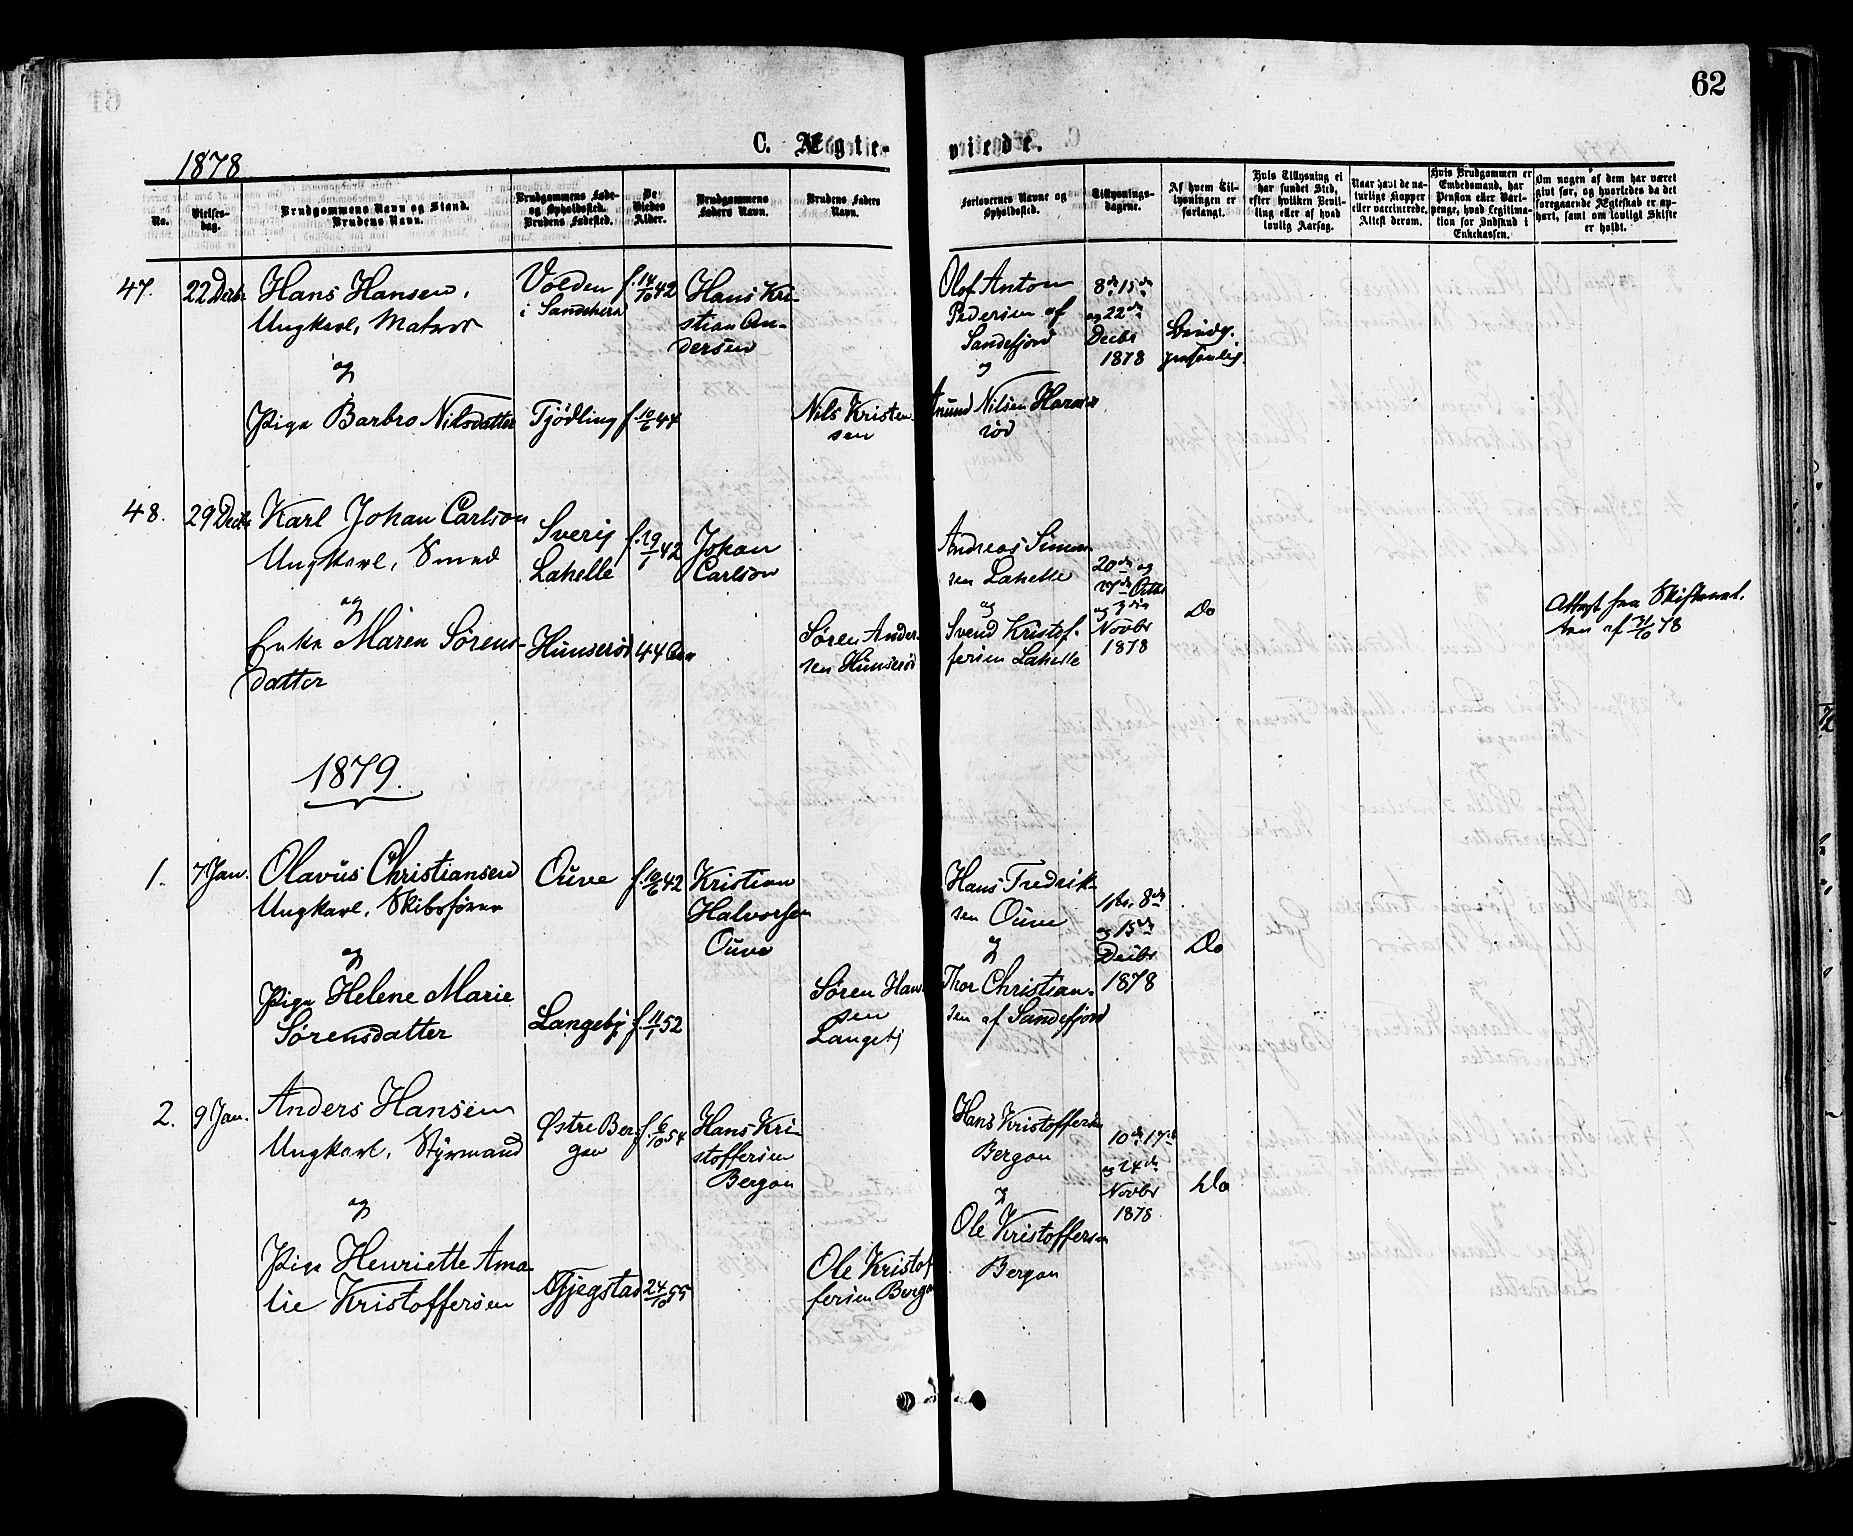 62
C. Ægte-
viede.
1878
No.
Vielses-
dag.
Brudgommens Navn og Stand.
Brudens Navn.
Brudgommens Føde-
og Opholdssted.
Brudens Fødested.
De
Viedes
Alder.
Brudgommens
Faders Navn.
Brudens Faders
Navn.
Forlovernes Navne og
Opholdssted.
Tillysnings-
dagene.
Af hvem Til-
lysningen er
forlangt.
Hvis Tillysning ei
har fundet Sted,
efter hvilken Bevil-
ling eller af hvad
lovlig Aarsag.
Naar havt de na-
turlige Kopper
eller vaccinerede.
Attest derom.
Hvis Brudgommen er
Embedsmand, har
Pension eller Vart-
penge, hvad Legitima-
tion for Indskud i
Enkekassen.
Om nogen af dem har været
gift før, og hvorledes da det
foregaaende Ægteskab er op-
hørt, samt om lovligt Skifte
er holdt.
47.
22 Decbr
Hans Hansen,
Ungkarl, Matros
og
Pige Barbro Nilsdatter
Volden
i Sandeherr
Tjødling
f. 14/10 42
f. 10/6 44
Hans Kri-
stian An-
dersen
Nils Kristen-
sen
Olof Anton
Pedersen af
Sandefjord
og
Anund Nilsen Haraes
rød
8de, 15de
og 22de
Decbr
1878
Brudg.
personlig.
48.
29 Decbr
Karl Johan Carlson
Ungkarl, Smed
og
Enke Maren Sørens-
datter
Sverig
Lahelle
Hunserød
f. 19/1 42
44 Aar
Johan
Carlson
Søren Ander-
sen Hunserød
Andreas Simon-
sen Lahelle
og
Svend Kristof-
fersen Lahelle
20de og
27de Octbr
og 3die
Novbr
1878
Do
Attest fra Skifteret-
ten af 31/10 78
1879.
1.
7 Jan.
Olavus Christiansen
Ungkarl, Skibsfører
og
Pige Helene Marie
Sørensdatter
Ouve
Langeby
f. 10/6 42
f. 11/1 52
Kristian
Halvorsen
Ouve
Søren Han-
sen
Langeby
Hans Fredrik-
sen Ouve
og
Thor Christian-
sen af Sandefjord
1ste, 8de
og 15de
Decbr
1878
Do
2.
9 Jan.
Anders Hansen
Ungkarl, Styrmand
og
Pige Henriette Ama-
lie Kristoffersen
Østre Ber-
gan
Gjegstad
f. 6/10 54
24/10 55
Hans Kri-
stoffersen
Bergan
Ole Kristof-
fersen Bergan
Hans Kristoffersen
Bergan
og
Ole Kristoffersen
Bergan
10de, 17de
og 24de
Novbr
1878
Do